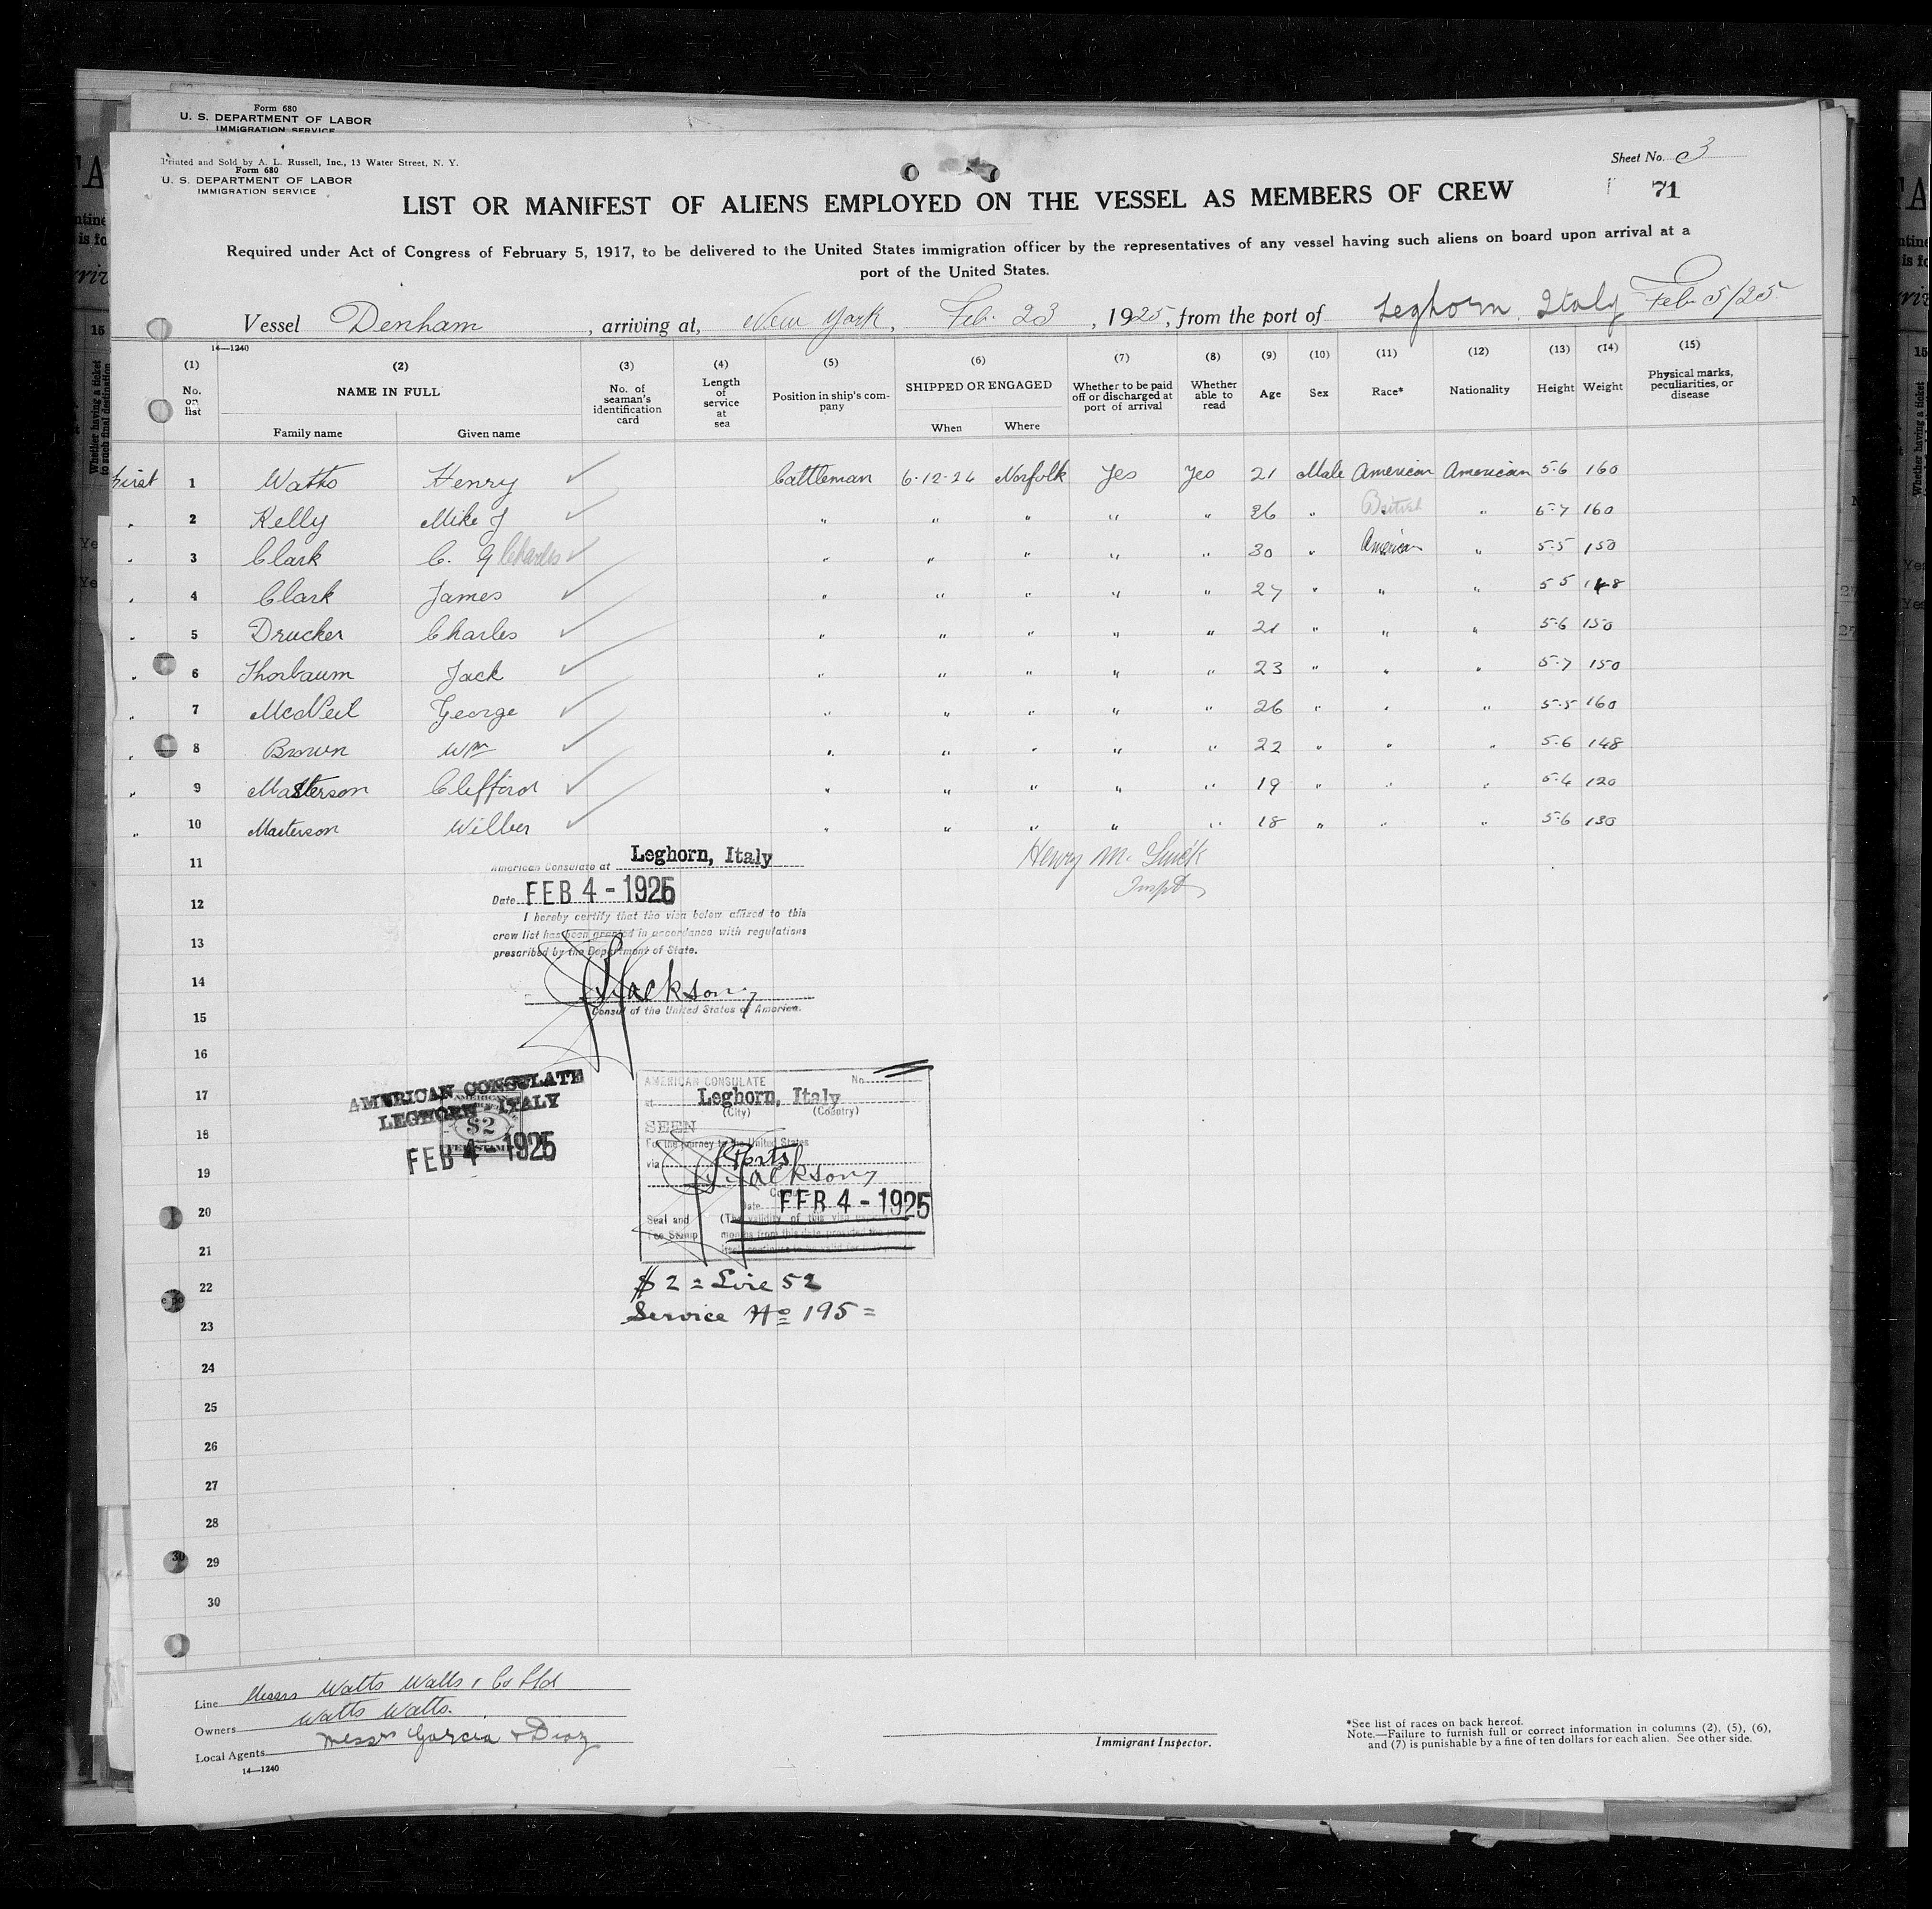 Form 680
U. S. DEPARTMENT OF LABOR
IMMIGRATION SERVICE
Printed and Sold by A. L. Russell, Inc., 13 Water Street, N. Y.
Form 680
U. S. DEPARTMENT OF LABOR
IMMIGRATION SERVICE
Sheet No. 3
71
LIST OR MANIFEST OF ALIENS EMPLOYED ON THE VESSEL AS MEMBERS OF CREW
Required under Act of Congress of February 5, 1917, to be delivered to the United States immigration officer by the representatives of any vessel having such aliens on board upon arrival at a
port of the United States.
Vessel Denham, arriving at, New York, Feb. 23, 1925, from the port of Leghorn, Italy Feb 5/25
14—1240
(1) No. on list
(2) NAME IN FULL
Family name Given name
(3) No. of seaman's identification card
(4) Length of service at sea
(5) Position in ship's company
(6) SHIPPED OR ENGAGED
When Where
(7) Whether to be paid off or discharged at port of arrival
(8) Whether able to read
(9) Age
(10) Sex
(11) Race*
(12) Nationality
(13) Height
(14) Weight
(15) Physical marks, peculiarities, or disease
first 1 Watts Henry ✓ Cattleman 6-12-24 Norfolk Yes Yes 21 Male American American 5-6 160
" 2 Kelly Mike J ✓ " " " " " 26 " British " 5-7 160
" 3 Clark C. G Charles ✓ " " " " " 30 " American " 5-5 150
" 4 Clark James ✓ " " " " " 27 " " " 5-5 148
" 5 Drucker Charles ✓ " " " " " 21 " " " 5-6 150
" 6 Thorbaum Jack ✓ " " " " " 23 " " " 5-7 150
" 7 McNeil George ✓ " " " " " 26 " " " 5-5 160
" 8 Brown Wm ✓ " " " " " 22 " " " 5-6 148
" 9 Masterson Clifford ✓ " " " " " 19 " " " 5-4 120
" 10 Masterson Wilber ✓ " " " " " 18 " " " 5-6 130
11
12
13
14
15
16
17
18
19
20
21
22
23
24
25
26
27
28
29
30
Henry M.
Inspt
American Consulate at Leghorn, Italy
Date FEB 4 - 1925
I hereby certify that the visa below affixed to this
crew list has been granted in accordance with regulations
prescribed by the Department of State.
Jackson
Consul of the United States of America.
AMERICAN CONSULATE
LEGHORN ITALY
FEB 4 1925
AMERICAN
$2
FEE STAMP
AMERICAN CONSULATE No.
at Leghorn, Italy
(City) (Country)
SEEN
For the journey to the United States
via Ports
Jackson
Date FEB 4 - 1925
Seal and
Fee Stamp
(The validity of this visa
months from this date provided the
$2 = Lire 52
Service No 195 =
Line Messrs Watts Watts & Co Ltd
Owners Watts Watts.
Local Agents Messrs Garcia & Diaz
14—1240
Immigrant Inspector.
*See list of races on back hereof.
Note.—Failure to furnish full or correct information in columns (2), (5), (6),
and (7) is punishable by a fine of ten dollars for each alien. See other side.